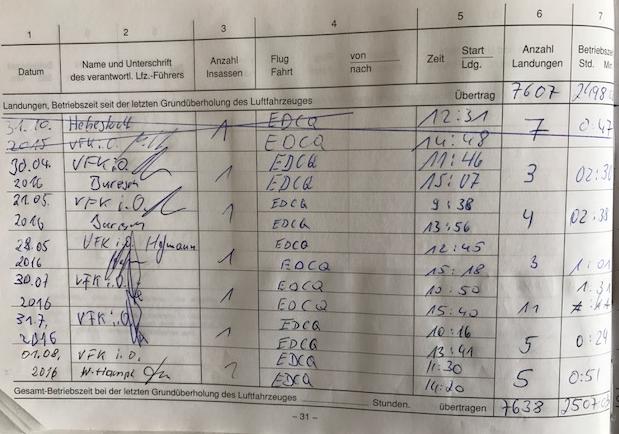 1 2 3 4 5 6 7
Datum Name und Unterschrift des verantwortl. Lfz.-Führers Anzahl Insassen Flug Fahrt von nach Zeit Start Ldg. Anzahl Landungen Betriebsze Std. Min
Landungen, Betriebszeit seit der letzten Grundüberholung des Luftfahrzeuges Übertrag 7607 2498
31.10. 1 EDCQ 12:31 7 0:47
2015 VFK EDCQ 14:48
30.04. VFK i.O. 1 EDCQ 11:46 3
2016 EDCQ 15:07 02:
21.05. VFK i.O. 1 EDCQ 9:38 4
2016 EDCQ 13:56 02:38
28.05 VFK i.O. 1 EDCQ 12:45 3
2016 EDCQ 15:18 1:01
30.07 VFK i.O. 1 EDCQ 10:50 11 1:31
2016 EDCQ 15:40
31.7. VFK i.O. 1 EDCQ 10:16 5
2016 EDCQ 13:41 0:24
01.08. VFK i.O. EDCQ 11:30 5
2016 EDCQ 14:20 0:51
Gesamt-Betriebszeit bei der letzten Grundüberholung des Luftfahrzeuges Stunden. übertragen 7638 2507
– 31 –